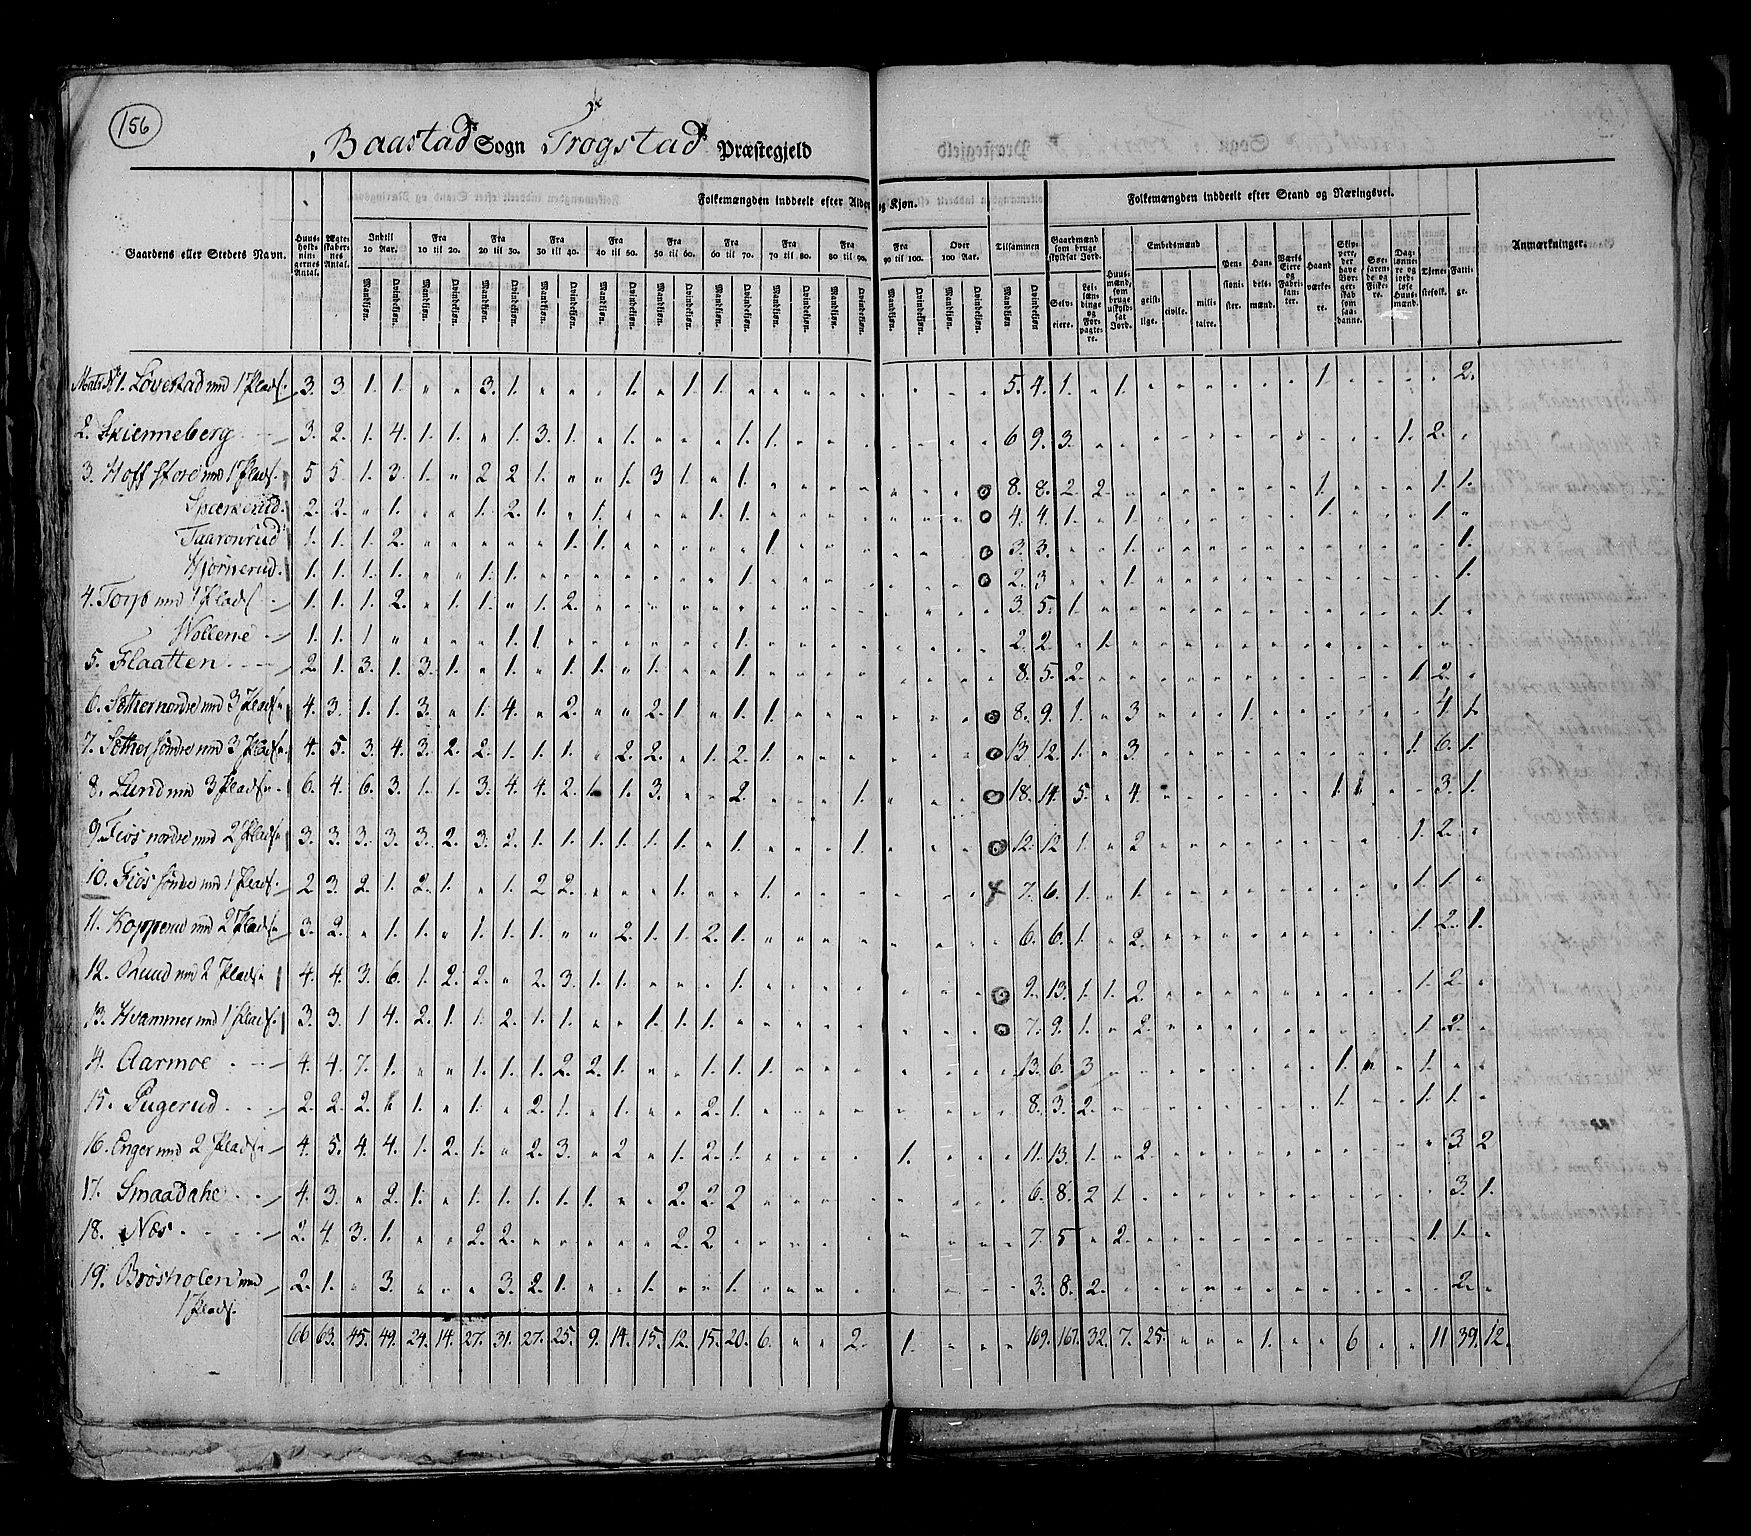 156
Baastad Sogn Trogstad Præstegjeld
Folkemængden inddeelt efter Alder og Kjøn.
Folkemængden inddeelt efter Stand og Næringsvei.
Gaardens eller Stedets Navn.
Huusholdningernes Antal.
Ægteskabernes Antal.
Indtil 10 Aar.
Fra 10 til 20.
Fra 20 til 30.
Fra 30 til 40.
Fra 40 til 50.
Fra 50 til 60.
Fra 60 til 70.
Fra 70 til 80.
Fra 80 til 90.
Fra 90 til 100.
Over 100 Aar.
Tilsammen
Gaardmænd som bruge skyldsat Jord.
Embedsmænd
Anmærkninger.
Mandkjøn. Qvindekjøn.
Selveiere.
Leilændinge og Forpagtere.
Huusmænd, som bruge uskyldsat Jord.
geistlige.
civile.
militaire.
Pensionister.
Handelsmænd.
Værks Eiere og Fabrikanter.
Haandværkere.
Skippere, der have Borgerskab som saadanne.
Søefarende og Fiskere.
Daglønnere og jordløse Huusmænd.
Tjenestefolk.
Fattige.
1. Løvestad med 1 Plads. 3. 3. 1. 1. 3. 1. 1. 1. 1. 5. 4. 1. 1. 1. 2.
2. Skienneberg 3. 2. 1. 4. 1. 1. 1. 3. 1. 1. 1. 1. 6 9. 3. 1. 2.
3. Hoff store med 1 Plads. 5 5 1. 3. 1. 2 2 1. 1. 3 1. 1. 8. 8. 2. 2. 1. 1. 1.
2. 2. 1. 1. 2. 1. 1. 1. 1. 4. 4. 1. 1. 1. 1.
Taaronrud 1. 1. 1. 2. 1. 1. 1. 3. 3. 1. 1.
1. 1. 1. 1. 1. 1. 1. 2. 3 1. 1.
4. Torp med 1 Plads 1. 1. 1. 2. 1. 1. 1. 2. 3. 5. 1. 1.
1. 1. 1 1. 1. 1. 2. 2. 1.
5. Flaatten 2. 1. 3. 1. 3. 1. 1. 1. 1. 1. 1. 8. 5. 2. 1. 2.
6. Sether nordre med 3 Pladse 4. 3. 1. 1. 3. 1. 4. 2. 2. 1. 1. 1. 8. 9. 1. 3 1. 4. 1.
7. Sether søndre med 3 Pladse 4. 5. 3. 4. 3. 2. 2. 1. 1. 1. 2. 2. 1. 2. 1. 13. 12. 1. 3. 1. 6. 1.
8. Lund med 3 Pladse 6. 4. 6. 3. 1. 1. 3. 4. 4. 2. 1 1. 3. 2. 1. 18. 14. 5. 4. 1. 1. 3. 1.
9. Fiøs nordre med 2 Pladse 3. 3. 3. 3. 3. 2. 3. 2. 1. 1. 1. 1. 1. 1. 1. 1. 12. 12 1. 2 1. 2.
10. Fiøs søndre med 1 Plads. 2 3. 2. 1. 2. 1. 1. 2 2. 1. 1. 7. 6. 1. 1. 1. 1.
11. Kopperud med 2 Pladse 3. 2. 1. 1. 1. 1. 1. 2. 1. 1. 2. 1. 6. 6. 1. 2. 1. 2. 1.
12. Ruud med 2 Pladse 4. 4. 3. 6. 1. 2. 2. 2. 3. 1. 1. 1. 9. 13. 1. 1. 2. 1. 2.
13. Hvammer med 1 Plads. 3. 3. 1 4. 2. 1. 1. 2. 1. 1. 1. 1. 1. 7. 9. 1. 2. 1. 2.
14. Aarmoe 4. 4. 7. 1. 1. 1. 1. 2. 2. 1. 1. 1. 1. 13. 6. 3 1. 1.
15. Pugerud 2. 2. 2. 1. 1. 2. 1. 1. 2. 1. 8. 3. 2. 1. 1. 1.
16. Enger med 2 Pladse 4. 5. 4. 4. 1. 2. 1. 2. 3. 2 1. 2. 1. 1. 11. 13. 1. 2. 3. 2
17. Smaadahl 4. 3. 2. 1. 1. 1. 1. 1. 1. 2. 2. 2 6. 8. 2 1. 3. 1.
18. Næs 2. 4. 3. 1. 2. 2. 2. 2. 7. 5 2. 1. 1.
19. Brøsholen med 2. 1. 3. 3. 2. 1. 1. 1. 3. 8. 2. 2.
1 Plads.
66 63. 45. 49. 24. 14. 27. 31. 27. 25. 9. 14. 15. 12. 15. 20. 6. 2. 1. 169. 167. 32. 7. 25. 1. 6 11 39. 12.